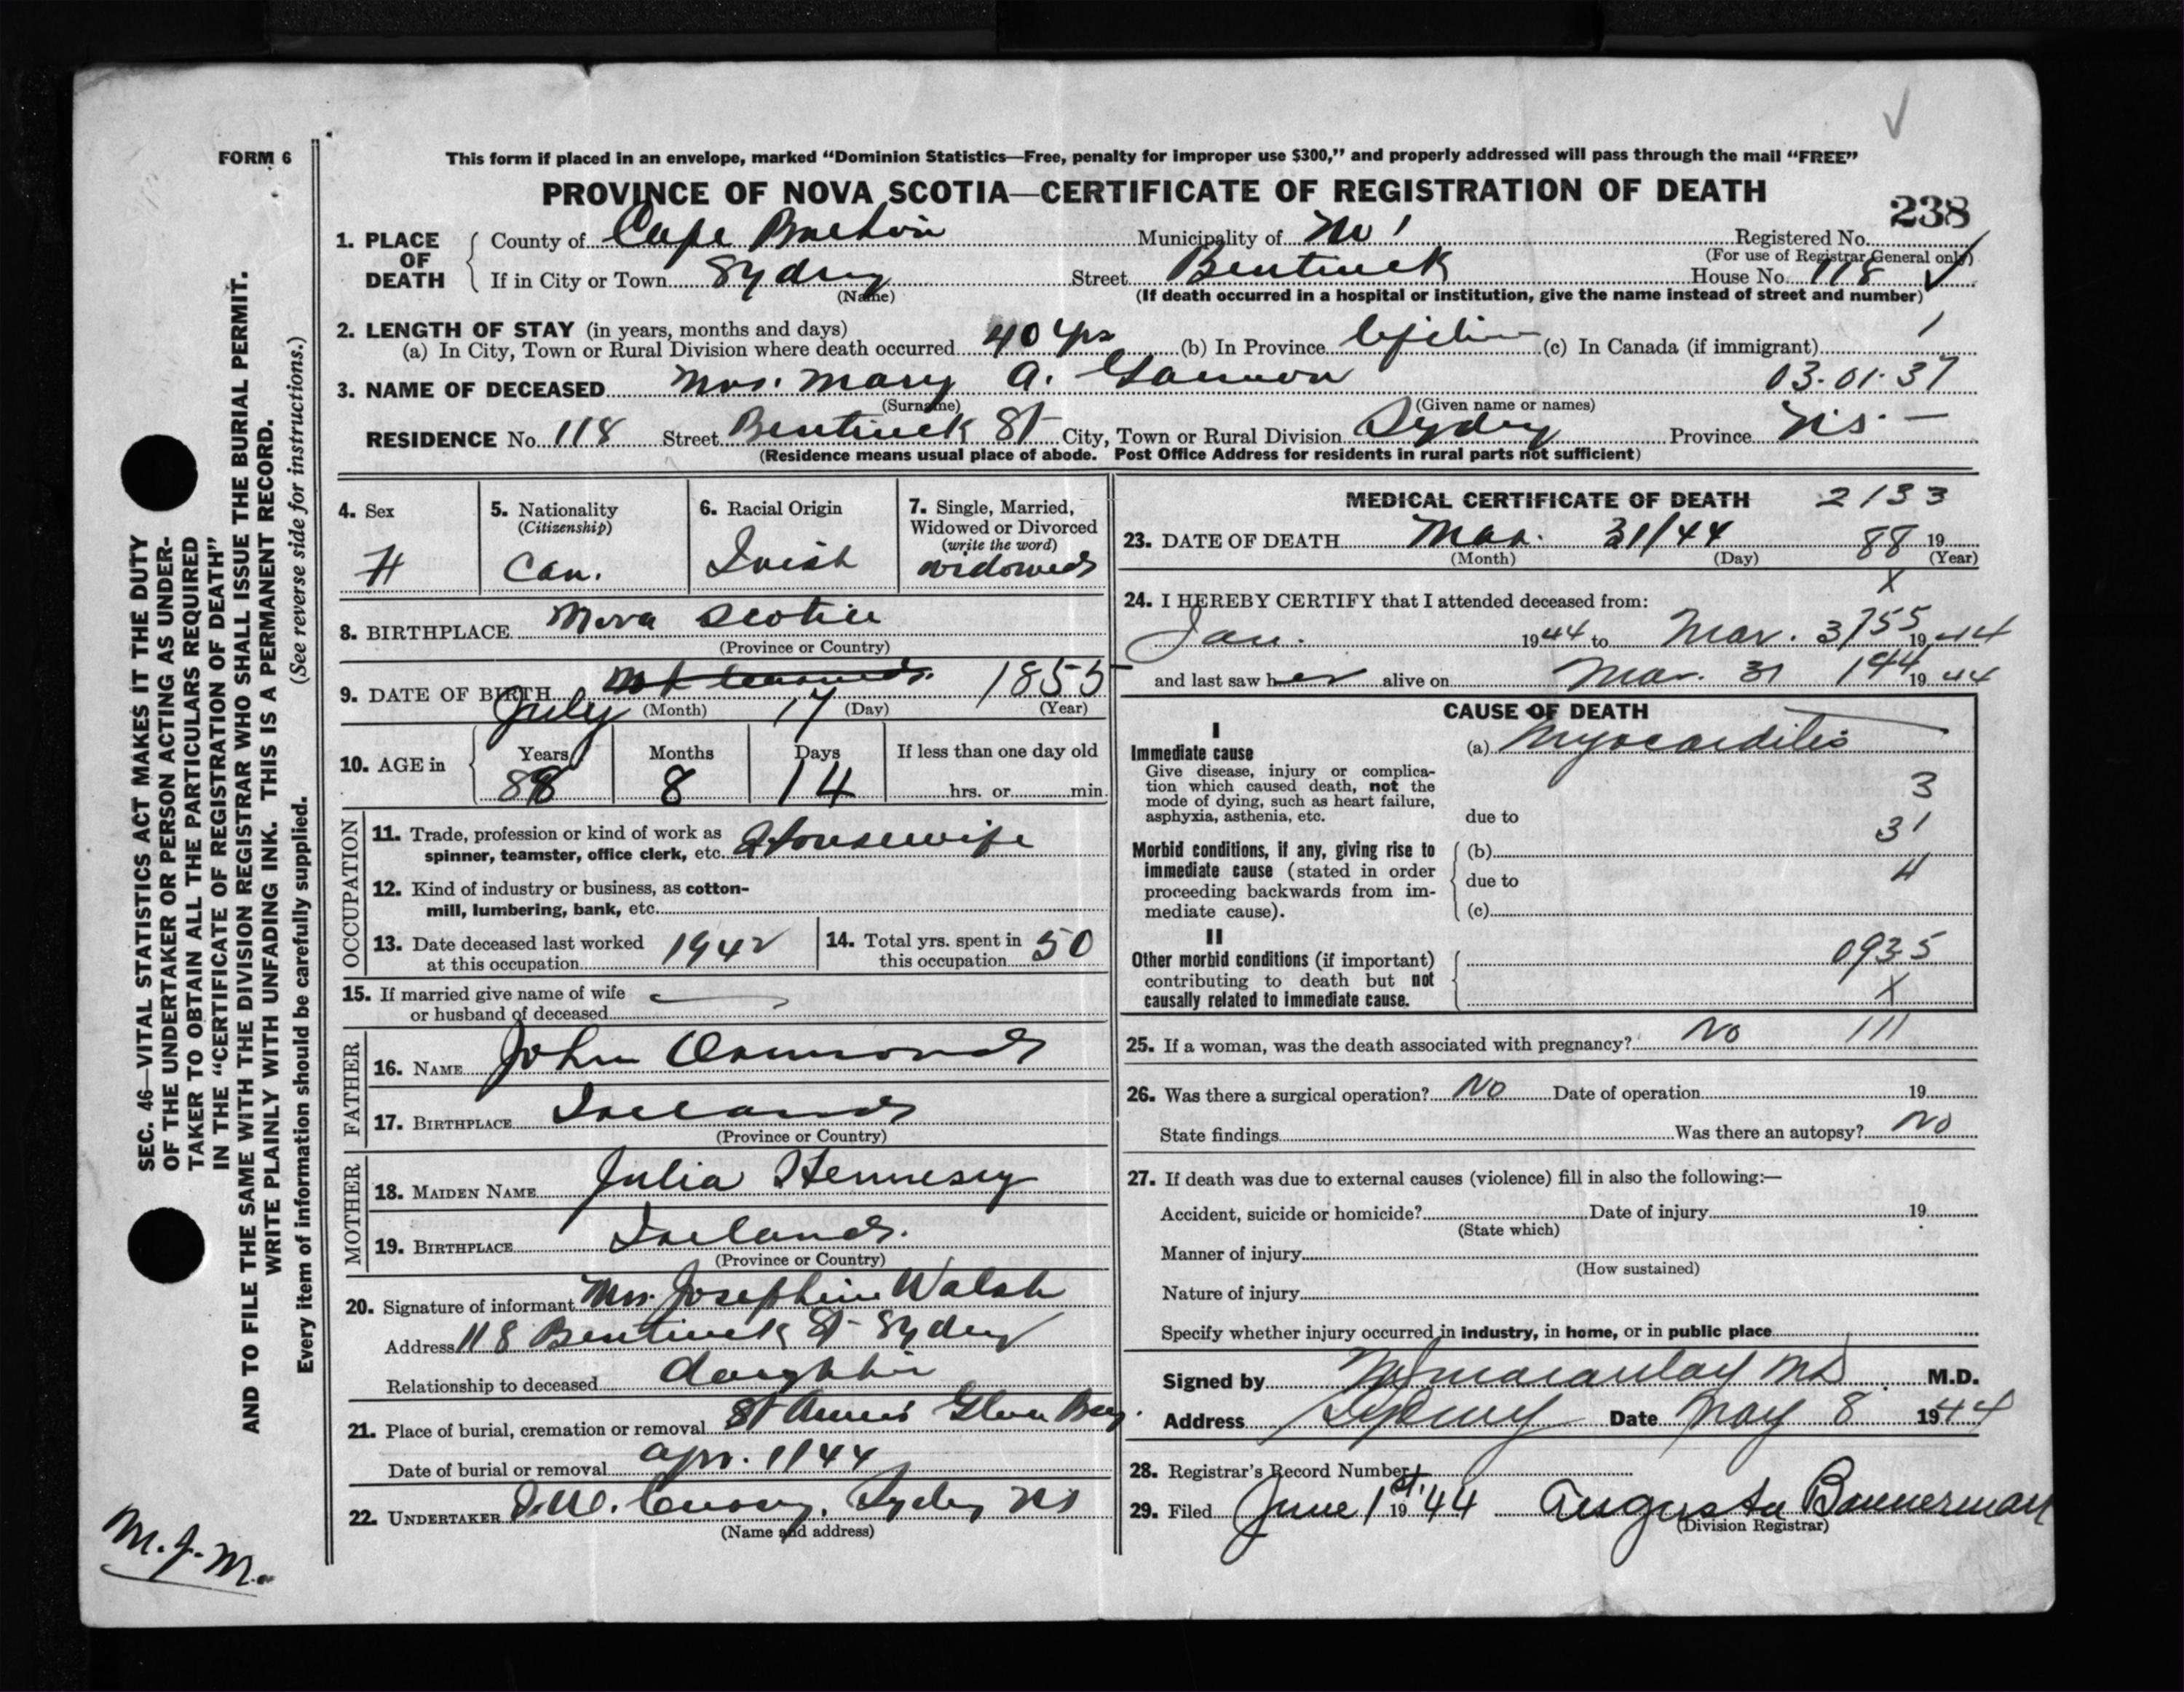 FORM 6
This form if placed in an envelope, marked “Dominion Statistics—Free, penalty for improper use $300,” and properly addressed will pass through the mail “FREE”
PROVINCE OF NOVA SCOTIA—CERTIFICATE OF REGISTRATION OF DEATH
238
1. PLACE OF DEATH County of Cape Breton Municipality of Registered No.
(For use of Registrar General only)
If in City or Town Sydney Street Bentinck House No. 118
(Name) (If death occurred in a hospital or institution, give the name instead of street and number)
2. LENGTH OF STAY (in years, months and days)
(a) In City, Town or Rural Division where death occurred 40 yrs (b) In Province Lifetime (c) In Canada (if immigrant)
3. NAME OF DECEASED Mrs. Mary A. 03.01.37
(Surname) (Given name or names)
RESIDENCE No. 118 Street Bentinck St City, Town or Rural Division Sydney Province N.S. —
(Residence means usual place of abode. Post Office Address for residents in rural parts not sufficient)
4. Sex
5. Nationality (Citizenship) Can.
6. Racial Origin Irish
7. Single, Married, Widowed or Divorced (write the word) widowed
8. BIRTHPLACE Nova Scotia
(Province or Country)
9. DATE OF BIRTH July 17 1855
(Month) (Day) (Year)
10. AGE in Years 88 Months 8 Days 14 If less than one day old
hrs. or min.
OCCUPATION
11. Trade, profession or kind of work as spinner, teamster, office clerk, etc. Housewife
12. Kind of industry or business, as cotton-mill, lumbering, bank, etc.
13. Date deceased last worked at this occupation 1942
14. Total yrs. spent in this occupation 50
15. If married give name of wife or husband of deceased
FATHER
16. NAME John Ormond
17. BIRTHPLACE Ireland
(Province or Country)
MOTHER
18. MAIDEN NAME Julia Hennesey
19. BIRTHPLACE Ireland.
(Province or Country)
20. Signature of informant Mrs. Josephine Walsh
Address 118 Bentinck St Sydney
Relationship to deceased daughter
21. Place of burial, cremation or removal St Anne's Glace Bay.
Date of burial or removal Apr. 1/44
22. UNDERTAKER Sydney NS
(Name and address)
MEDICAL CERTIFICATE OF DEATH 2133
23. DATE OF DEATH Mar. 31/44 88 19
(Month) (Day) (Year)
X
24. I HEREBY CERTIFY that I attended deceased from:
Jan. 1944 to Mar. 31 1944
755
and last saw her alive on Mar. 31 1944 1944
CAUSE OF DEATH
I
Immediate cause (a) Myocarditis
Give disease, injury or complica-
tion which caused death, not the
mode of dying, such as heart failure,
asphyxia, asthenia, etc. due to
3
31
4
Morbid conditions, if any, giving rise to (b)
immediate cause (stated in order due to
proceeding backwards from im-
mediate cause). (c)
II
Other morbid conditions (if important) 0935
contributing to death but not
causally related to immediate cause. X
25. If a woman, was the death associated with pregnancy? No 111
26. Was there a surgical operation? No Date of operation 19
State findings Was there an autopsy? No
27. If death was due to external causes (violence) fill in also the following:—
Accident, suicide or homicide? Date of injury 19
(State which)
Manner of injury
(How sustained)
Nature of injury
Specify whether injury occurred in industry, in home, or in public place
Signed by Macaulay MD M.D.
Address Sydney Date May 8 1944
28. Registrar's Record Number
29. Filed June 1st. 1944 Augusta Bannerman
(Division Registrar)
SEC. 46—VITAL STATISTICS ACT MAKES IT THE DUTY
OF THE UNDERTAKER OR PERSON ACTING AS UNDER-
TAKER TO OBTAIN ALL THE PARTICULARS REQUIRED
IN THE “CERTIFICATE OF REGISTRATION OF DEATH”
AND TO FILE THE SAME WITH THE DIVISION REGISTRAR WHO SHALL ISSUE THE BURIAL PERMIT.
WRITE PLAINLY WITH UNFADING INK. THIS IS A PERMANENT RECORD.
Every item of information should be carefully supplied. (See reverse side for instructions.)
M.J.M.